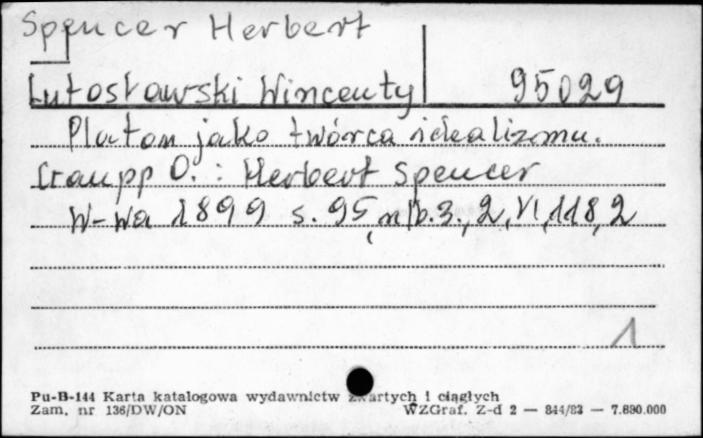 Spencer Herbert
Lutosławski Wincenty 95029
Platon jako twórca idealizmu.
Graupp O. : Herbert Spencer
W-wa 1899 s. 95, nlb. 3., 2, VI, 118, 2
1
Pu-B-144 Karta katalogowa wydawnictw zwartych i ciągłych
Zam. nr 136/DW/ON WZGraf. Z-d 2 — 844/83 — 7.890.000